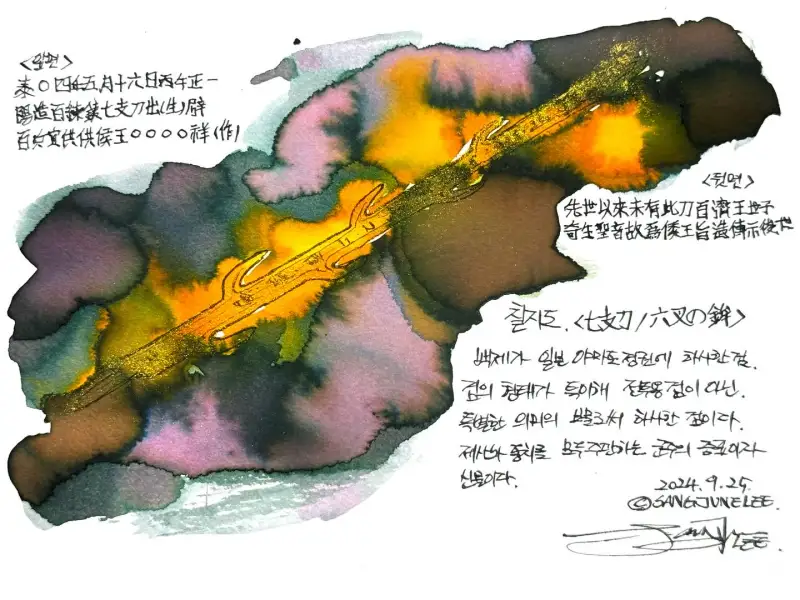 <앞면>
泰○四年五月十六日丙午正一
陽造百錬鋼七支刀出(生)辟
百兵宜供供侯王○○○○祥(作)
<뒷면>
先世以來未有此刀百濟王世子
奇生聖音故爲倭王旨造傳示後世
칠지도. <七支刀/六叉の鉾>
백제가 일본 야마토정권에 하사한 검.
검의 형태가 특이해 전투용검이 아닌.
특별한 의미의 보물로써 하사한 검이다.
제사와 통치를 모두 주관하는 군주의 증표이자
신물이다.
2024.9.25.
©SANGJUNELEE.
LEE